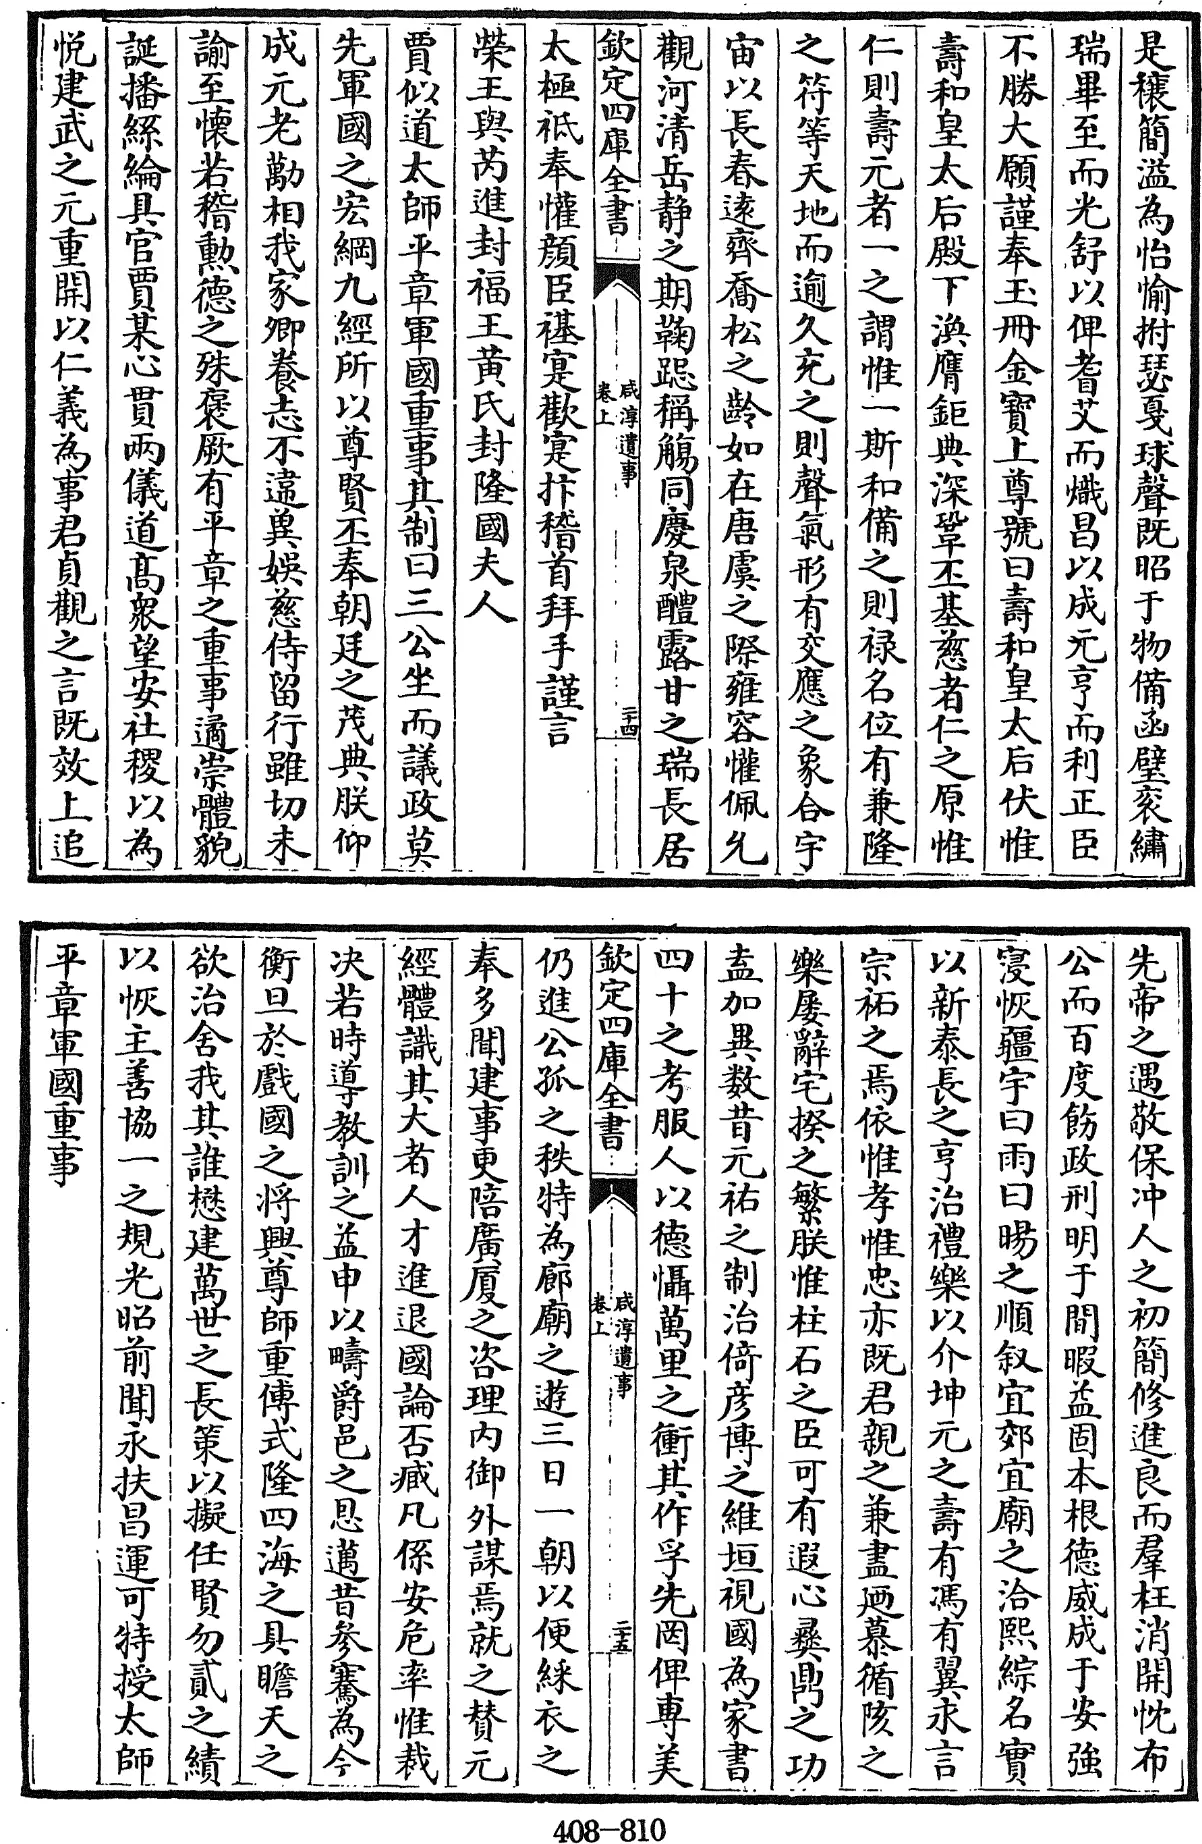 是穰簡溢為怡愉拊瑟戛球聲既昭于物備函璧衮繡
瑞畢至而光舒以俾耆艾而熾昌以成元亨而利正臣
不勝大願謹奉玉冊金寳上尊號曰壽和皇太后伏惟
壽和皇太后殿下渙膺鉅典深鞏丕基慈者仁之原惟
仁則壽元者一之謂惟一斯和備之則禄名位有兼隆
之符等天地而逾久充之則聲氣形有交應之象合宇
宙以長春逺齊喬松之齡如在唐虞之際雍容懽佩允
觀河清岳静之期鞠跽稱觴同慶泉醴露甘之瑞長居
欽定四庫全書
咸淳遺事
卷上
二十四
太極祗奉懽顔臣禥寔歡寔抃稽首拜手謹言
榮王與芮進封福王黄氏封隆國夫人
賈似道太師平章軍國重事其制曰三公坐而議政莫
先軍國之宏綱九經所以尊賢丕奉朝廷之茂典朕仰
成元老勱相我家卿養志不違兾娱慈侍留行雖切未
諭至懷若稽勲德之殊褒厥有平章之重事遹崇體貌
誕播綵綸具官賈某心貫兩儀道髙衆望安社稷以為
悦建武之元重開以仁義為事君貞觀之言既效上追
先帝之遇敬保冲人之初簡修進良而羣枉消開忱布
公而百度飭政刑明于間暇益固本根德威成于安強
寖恢疆宇曰雨曰暘之順叙宜郊宜廟之洽熙綜名實
以新泰長之亨治禮樂以介坤元之壽有馮有翼永言
宗祏之焉依惟孝惟忠亦既君親之兼盡廼慕循陔之
樂屡辭宅揆之繁朕惟柱石之臣可有遐心彞鼎之功
盍加異数昔元祐之制治倚彦博之維垣視國為家書
四十之考服人以德懾萬里之衝其作孚先罔俾専美
欽定四庫全書
咸淳遺事
卷上
二十五
仍進公孤之秩特為廊廟之遊三日一朝以便綵衣之
奉多聞建事更陪廣厦之咨理内御外謀焉就之賛元
經體識其大者人才進退國論否臧凡係安危率惟裁
决若時導教訓之益申以疇爵邑之恩邁昔參騫為今
衡旦於戲國之将興尊師重傅式隆四海之具瞻天之
欲治舍我其誰懋建萬世之長策以擬任賢勿貳之績
以恢主善協一之規光昭前聞永扶昌運可特授太師
平章軍國重事
408-810